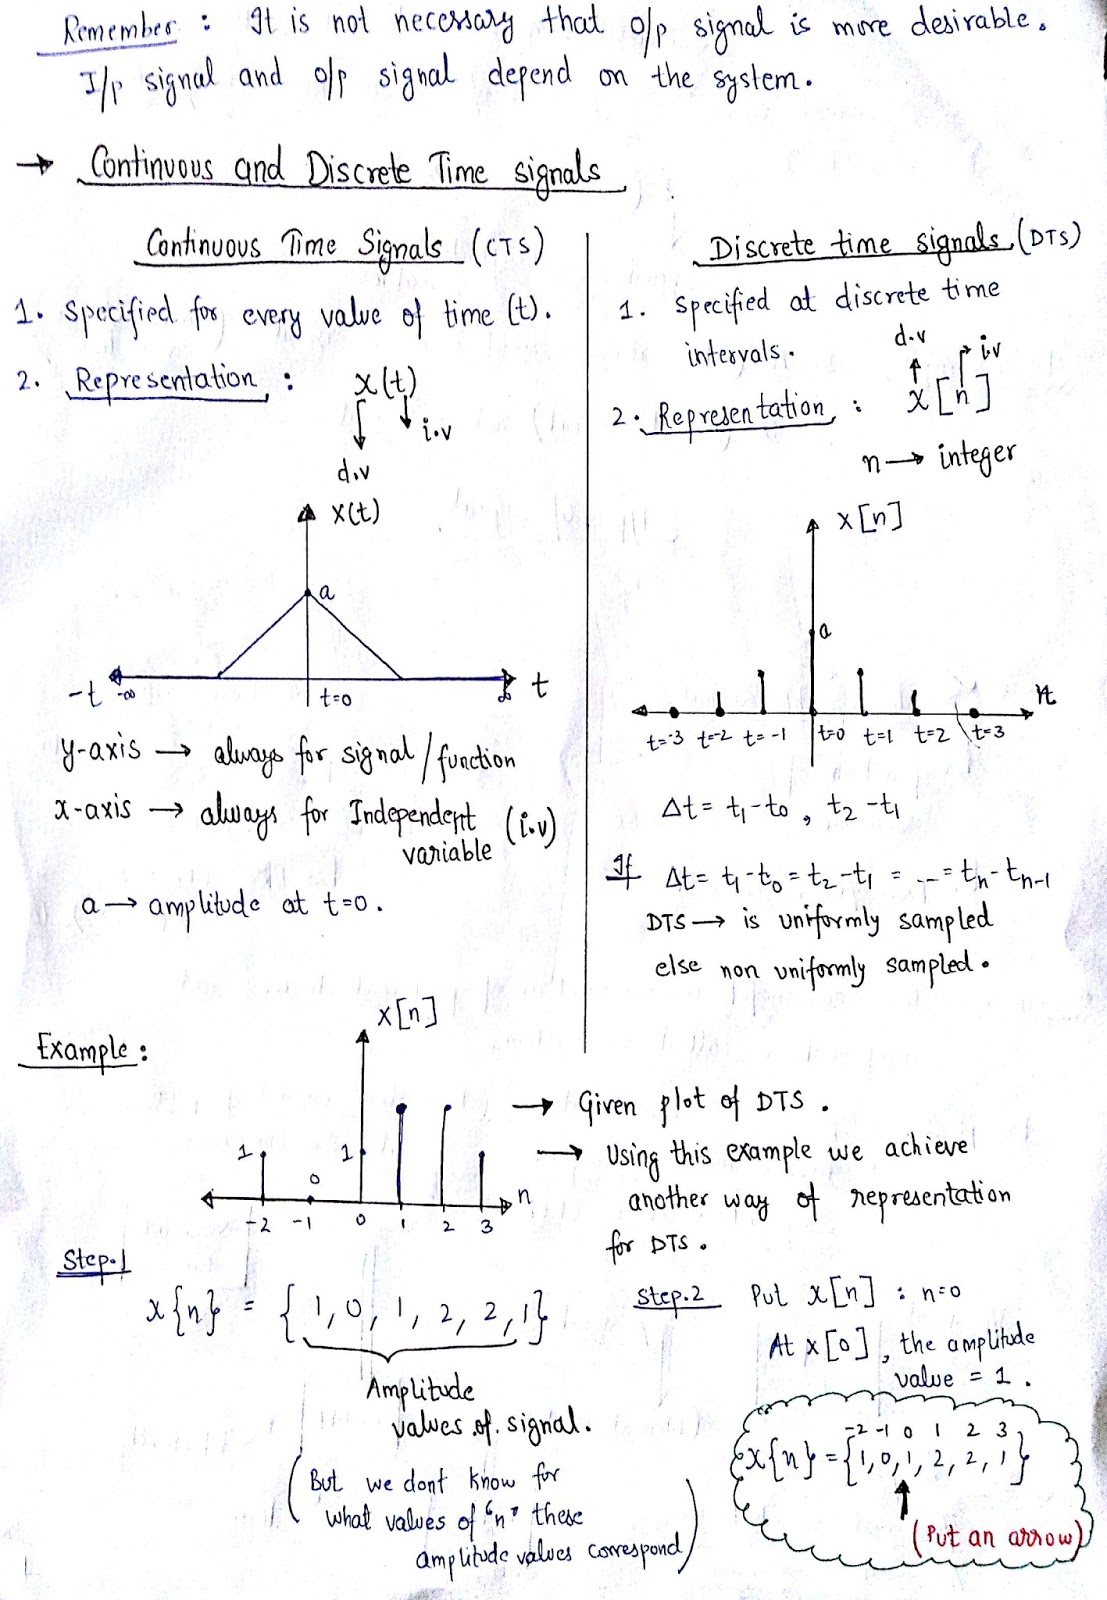 Remember : It is not necessary that o/p signal is more desirable.
I/p signal and o/p signal depend on the system.
→ Continuous and Discrete Time signals
Continuous Time Signals (CTS)
1. Specified for every value of time (t).
2. Representation : x(t)
i.v
d.v
x(t)
a
-t -∞ t=0 ∞ t
y-axis → always for signal/function
x-axis → always for Independent (i.v)
variable
a → amplitude at t=0.
Discrete time signals (DTS)
1. Specified at discrete time
intervals.
d.v i.v
2. Representation : x[n]
n → integer
x[n]
a
t=-3 t=-2 t=-1 t=0 t=1 t=2 t=3
Δt = t1-t0, t2-t1
If Δt = t1-t0 = t2-t1 = --- = tn-tn-1
DTS → is uniformly sampled
else non uniformly sampled.
Example :
x[n]
1 0 1 n
-2 -1 0 1 2 3
→ Given plot of DTS.
→ Using this example we achieve
another way of representation
for DTS.
Step.1
x{n} = {1, 0, 1, 2, 2, 1}
Amplitude
values of signal.
(But we dont know for
what values of "n" these
amplitude values correspond)
Step.2 Put x[n] : n=0
At x[0], the amplitude
value = 1.
-2 -1 0 1 2 3
x{n} = {1, 0, 1, 2, 2, 1}
↑
(Put an arrow)